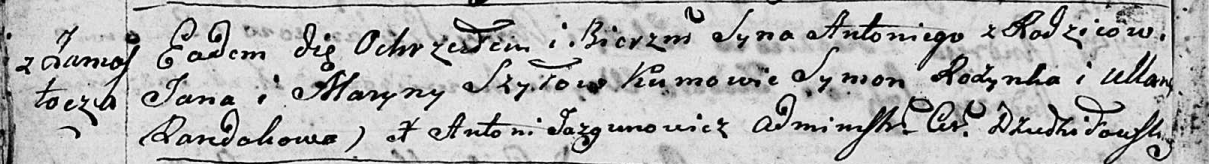 z Zamos
tocza
Eadem die Ochrzciłem i Bierzm Syna Antoniego z Rodziców.
Jana i Maryny Szyłow Kumowie Symon Rożynka i
Randakowa) X Antoni Jazgunowicz Administr. Cer.